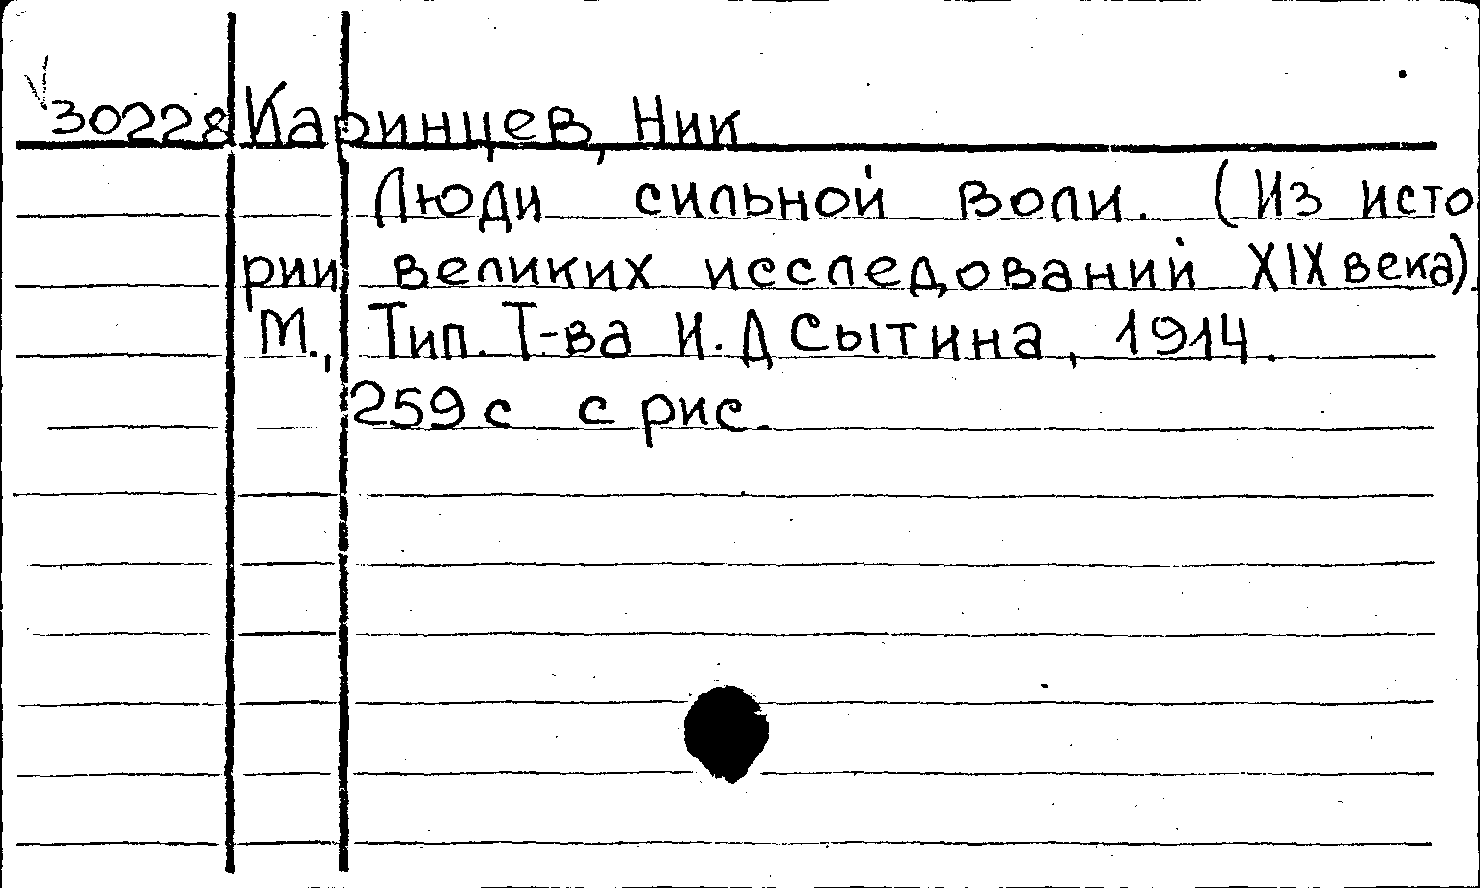 30228 Каринцев, Ник
Люди сильной воли. (Из исто
рии великих исследований XIX века).
М., Тип. Т-ва И. Д Сытина, 1914.
259 с с рис.